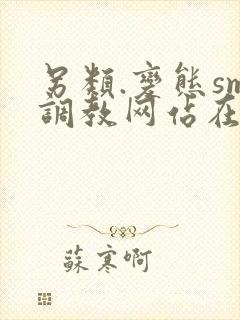 另類.變態sm
調教网佔在
蘇寒啊